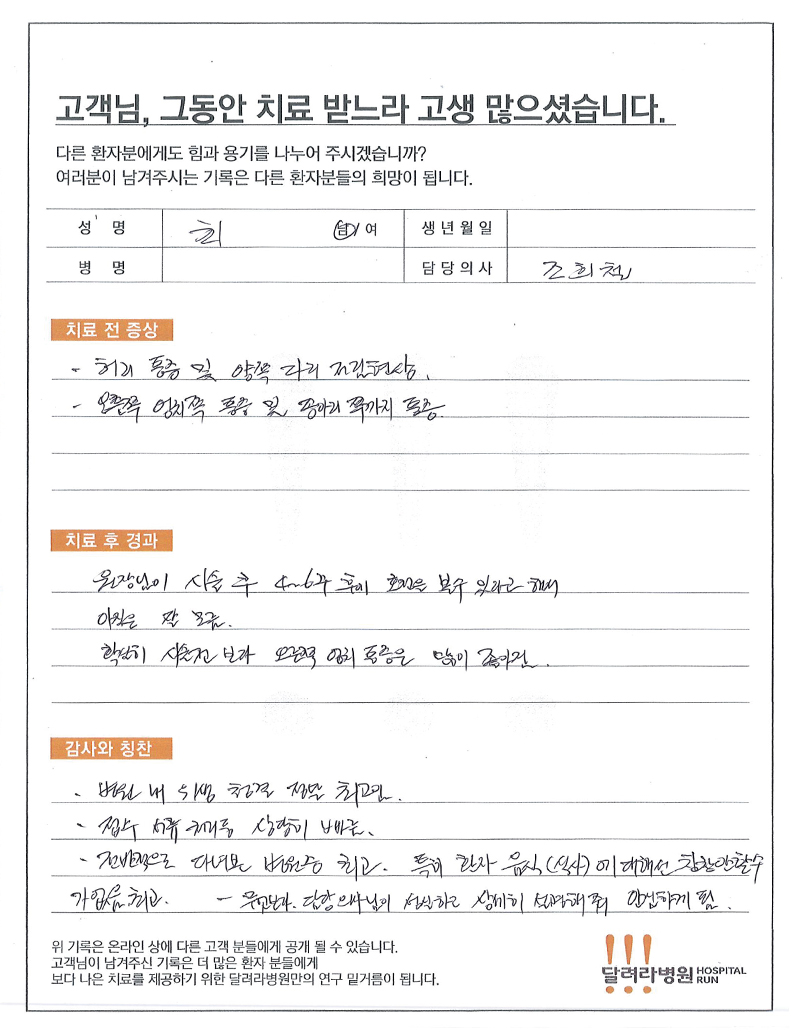 고객님, 그동안 치료 받느라 고생 많으셨습니다.
다른 환자분에게도 힘과 용기를 나누어 주시겠습니까?
여러분이 남겨주시는 기록은 다른 환자분들의 희망이 됩니다.
성 명 최 남/여 생년월일
병 명 담당의사 조희철
치료 전 증상
- 허리 통증 및 양쪽 다리 저림현상.
- 오른쪽 엉치쪽 통증 및 종아리 쪽까지 통증
치료 후 경과
원장님이 시술 후 4~6주 후에 호전을 볼수 있다고 해서
아직은 잘 모름.
확실히 시술전 보다 오른쪽 엉치 통증은 많이 좋아진.
감사와 칭찬
- 병원 내 위생 청결 정말 최고임.
- 접수 서류 상당히 빠름.
- 전반적으로 다녀본 병원중 최고. 특히 환자 음식(식사)에 대해선 칭찬안할수
가 없음 최고. - 무엇보다. 담당의사님이 성실하고 상세히 설명해줘 안심하게 됨.
위 기록은 온라인 상에 다른 고객 분들에게 공개 될 수 있습니다.
고객님이 남겨주신 기록은 더 많은 환자 분들에게
보다 나은 치료를 제공하기 위한 달려라병원만의 연구 밑거름이 됩니다.
!!!
달려라병원 HOSPITAL RUN